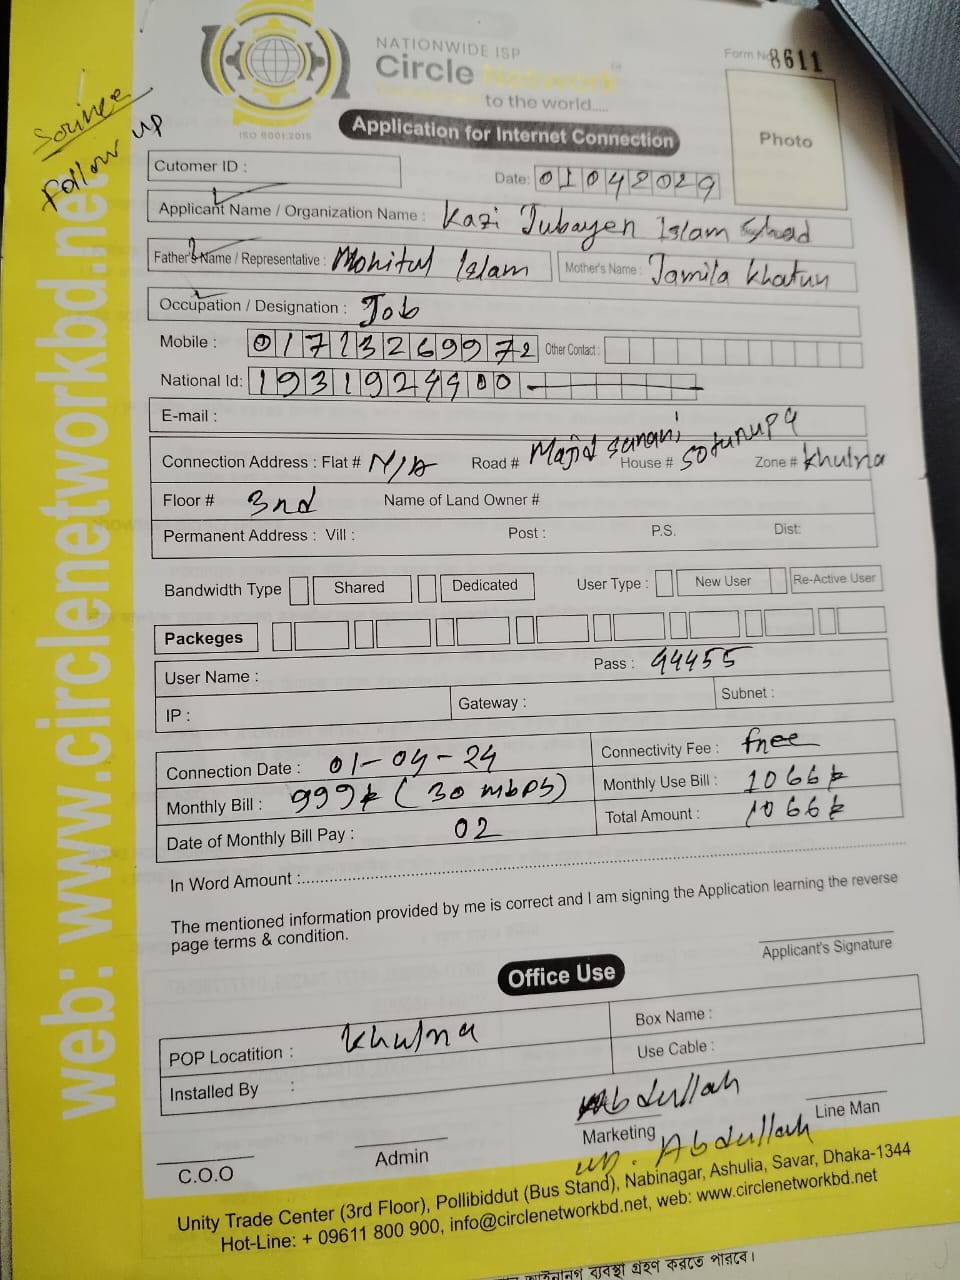 NATIONWIDE ISP
Circle Network
to the world.....
ISO 9001:2015
Form No 8611
Photo
Follow up
Application for Internet Connection
Cutomer ID :
Date: 01042029
Applicant Name / Organization Name : Kazi Jubayen Islam
Father's Name / Representative : Mohitul Islam Mother's Name : Jamila Khatun
Occupation / Designation : Job
Mobile : 01713269972 Other Contact :
National Id: 1931924400
E-mail :
Connection Address : Flat # N/A Road # Majid Sarani House # Zone # Khulna
Floor # 3nd Name of Land Owner #
Permanent Address : Vill : Post : P.S. Dist:
Bandwidth Type Shared Dedicated User Type : New User Re-Active User
Packeges
User Name : Pass : 44455
IP : Gateway : Subnet :
Connection Date : 01-04-24 Connectivity Fee : free
Monthly Bill : 999৳ ( 30 mbps) Monthly Use Bill : 1066৳
Date of Monthly Bill Pay : 02 Total Amount : 1066৳
In Word Amount :
The mentioned information provided by me is correct and I am signing the Application learning the reverse
page terms & condition.
Applicant's Signature
Office Use
POP Locatition : Khulna Box Name :
Installed By : Use Cable :
Abdullah
C.O.O Admin Marketing Line Man
Abdullah
Unity Trade Center (3rd Floor), Pollibiddut (Bus Stand), Nabinagar, Ashulia, Savar, Dhaka-1344
Hot-Line: + 09611 800 900, info@circlenetworkbd.net, web: www.circlenetworkbd.net
ব্যবস্থা গ্রহণ করতে পারবে।
web: www.circlenetworkbd.net